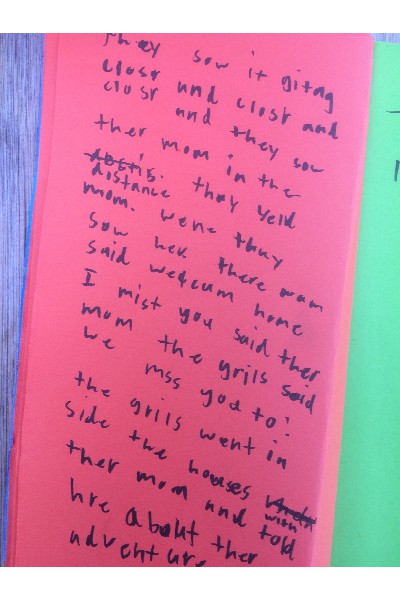 they sow it gitng
closr and closr and
closr and they sow
ther mom in the
distance they yelld
mom. wene thuy
sow her. there mam
said wedcum home
I mist you said ther
mom the grils said
we mss you to!
the grils went in
side the houses with
ther mom and told
hre about ther
adventure